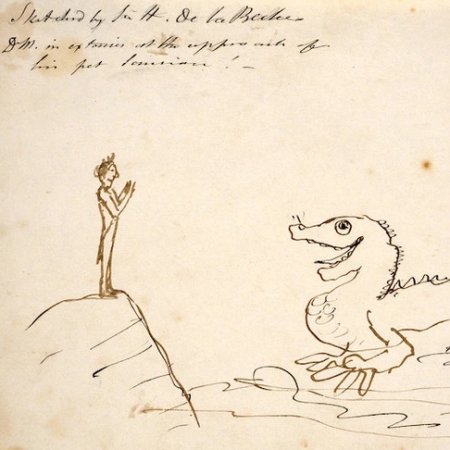 Sketched by Sir H. De la Beche
DM. in extasies at the approach of
his pet Saurian! -